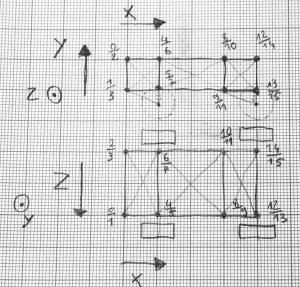 X
Y 0/2 4/6 8/10 12/14
Z 1/3 5/7 9/11 13/15
2/3 6/7 10/11 14/15
Z
Y 0/1 4/5 8/9 12/13
X